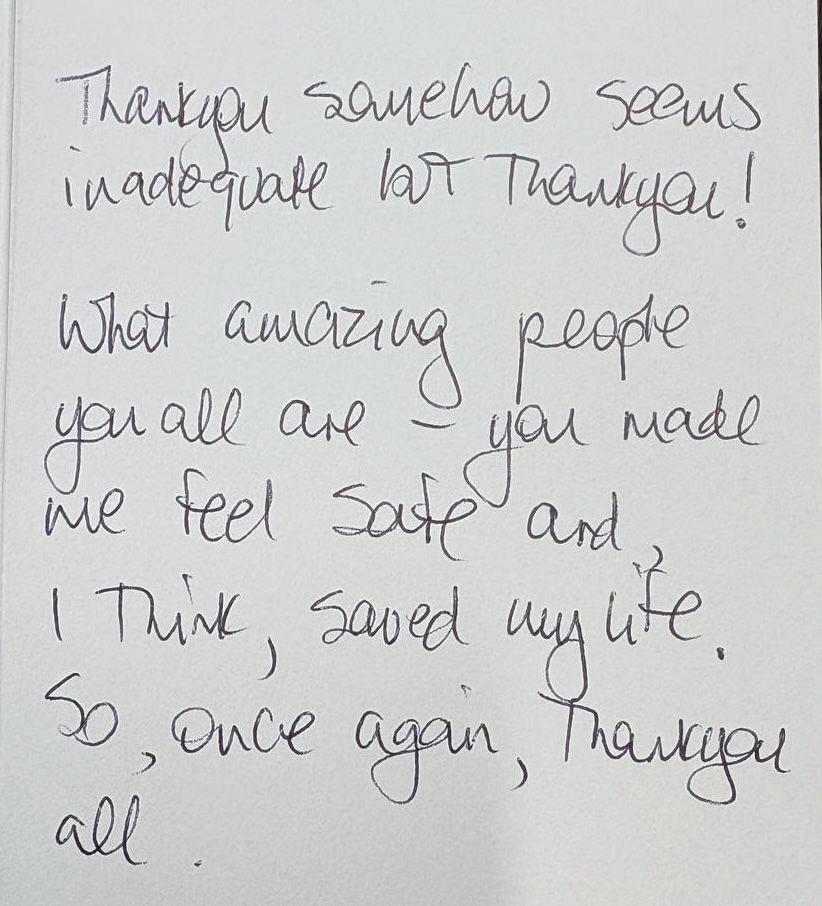 Thankyou somehow seems
inadequate but Thankyou!
What amazing people
you all are – you made
me feel safe and,
I Think, saved my life.
So, once again, Thankyou
all.